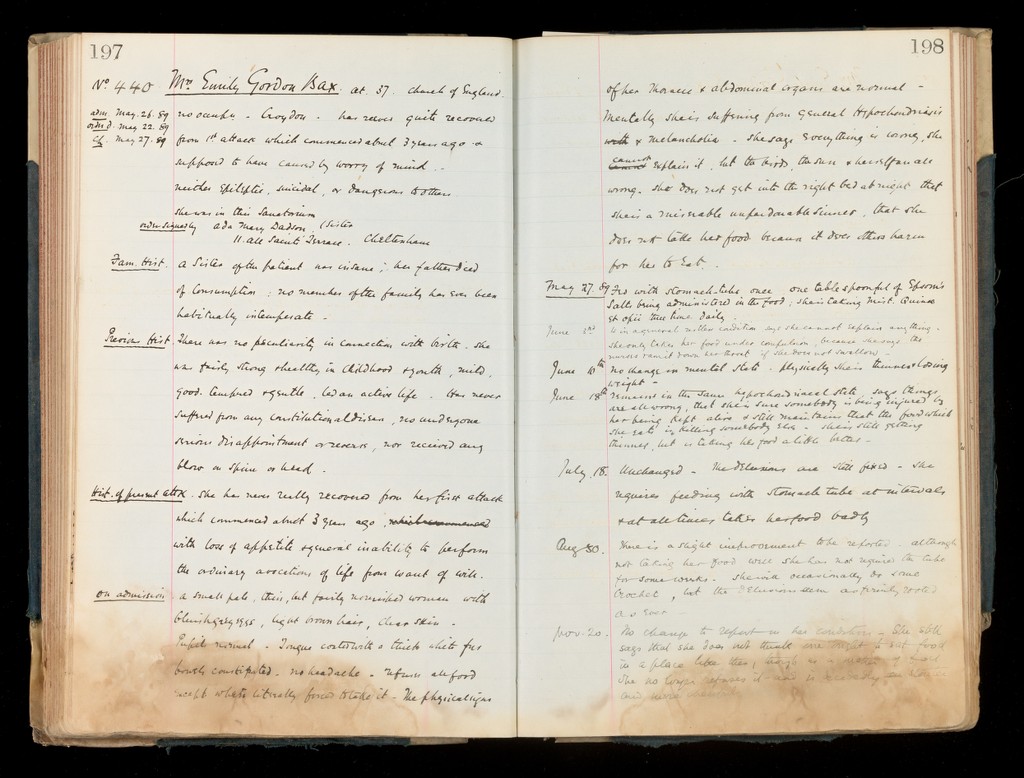 197
No 440 Mrs Emily Gordon Bax. æt. 37. Church of England.
adm. May. 26. 89 no occupn. Croydon. has never quite recovered
ord'd. May 22. 89
Cf. May 27. 89 from 1st attack which commenced about 3 years ago &
supposed to have caused by worry of mind.
neither Epileptic, suicidal, or dangerous to others
She was in this Sanatorium
order signed by Ada Mary Dadson. (Sister
11. All Saints' Terrace. Cheltenham
Fam. Hist. A Sister of the patient was insane; her father died
of Consumption: no member of the family has ever been
habitually intemperate.
Previous Hist There was no peculiarity in connection with birth. She
was fairly strong & healthy in Childhood & youth, mild,
good-tempered & gentle, led an active life. Has never
suffered from any constitutional disease, nor undergone
serious disappointment or reverse, nor received any
blow on Spine or head.
Hist. of present attck. She has never really recovered from her first attack
which commenced about 3 years ago, which commenced
with loss of appetite & general inability to perform
the ordinary avocations of life from want of will.
On admission A small pale, thin, but fairly nourished woman with
bluish grey eyes, light brown hair, clear skin.
Pupils normal. Tongue coated with a thick white fur
bowels constipated. no headache. refuses all food
except what is literally forced to take it. The physical signs
198
of her thoracic & abdominal organs are normal.
Mentally she is suffering from general Hypochondriasis
with & melancholia. She says everything is wrong, she
cannot explains it, but the birds, the sun & herself are all
wrong. She does not get into the right bed at night that
she is a miserable unpardonable sinner, that she
does not take her food because it does others harm
for her to Eat.
May 27. 89 Fed with stomach-tube once one tablespoonful of Epsom's
Salts being administered in the food; she is taking Mist. Quinae
et opii three times daily.
June 2nd Is in a general condition says she cannot explain anything.
She only takes her food under compulsion, because she says the
nurses ram it down her throat if she does not swallow.
June 10th No change in mental state. physically she is thinner & losing
weight.
June 18th Remains in the same hypochondriacal state, says things
are all wrong, that she is sure somebody is being injured by
her being kept alive & still maintains that the food which
she eats is killing somebody else. She is still getting
thinner, but is taking her food a little better.
July. 18. Unchanged. The delusions are still fixed. She
requires feeding with stomach tube at intervals
& at all times takes her food badly
Aug 30. There is a slight improvement to be reported. although
not taking her food well she has not required the tube
for some weeks. She will occasionally do some
crochet, but the delusions seem as firmly rooted
as ever.
Nov. 20. No change to report in her condition. She still
says that she does not think she ought to eat food
in a place like this, though as a matter of
She no longer refuses it and is
and